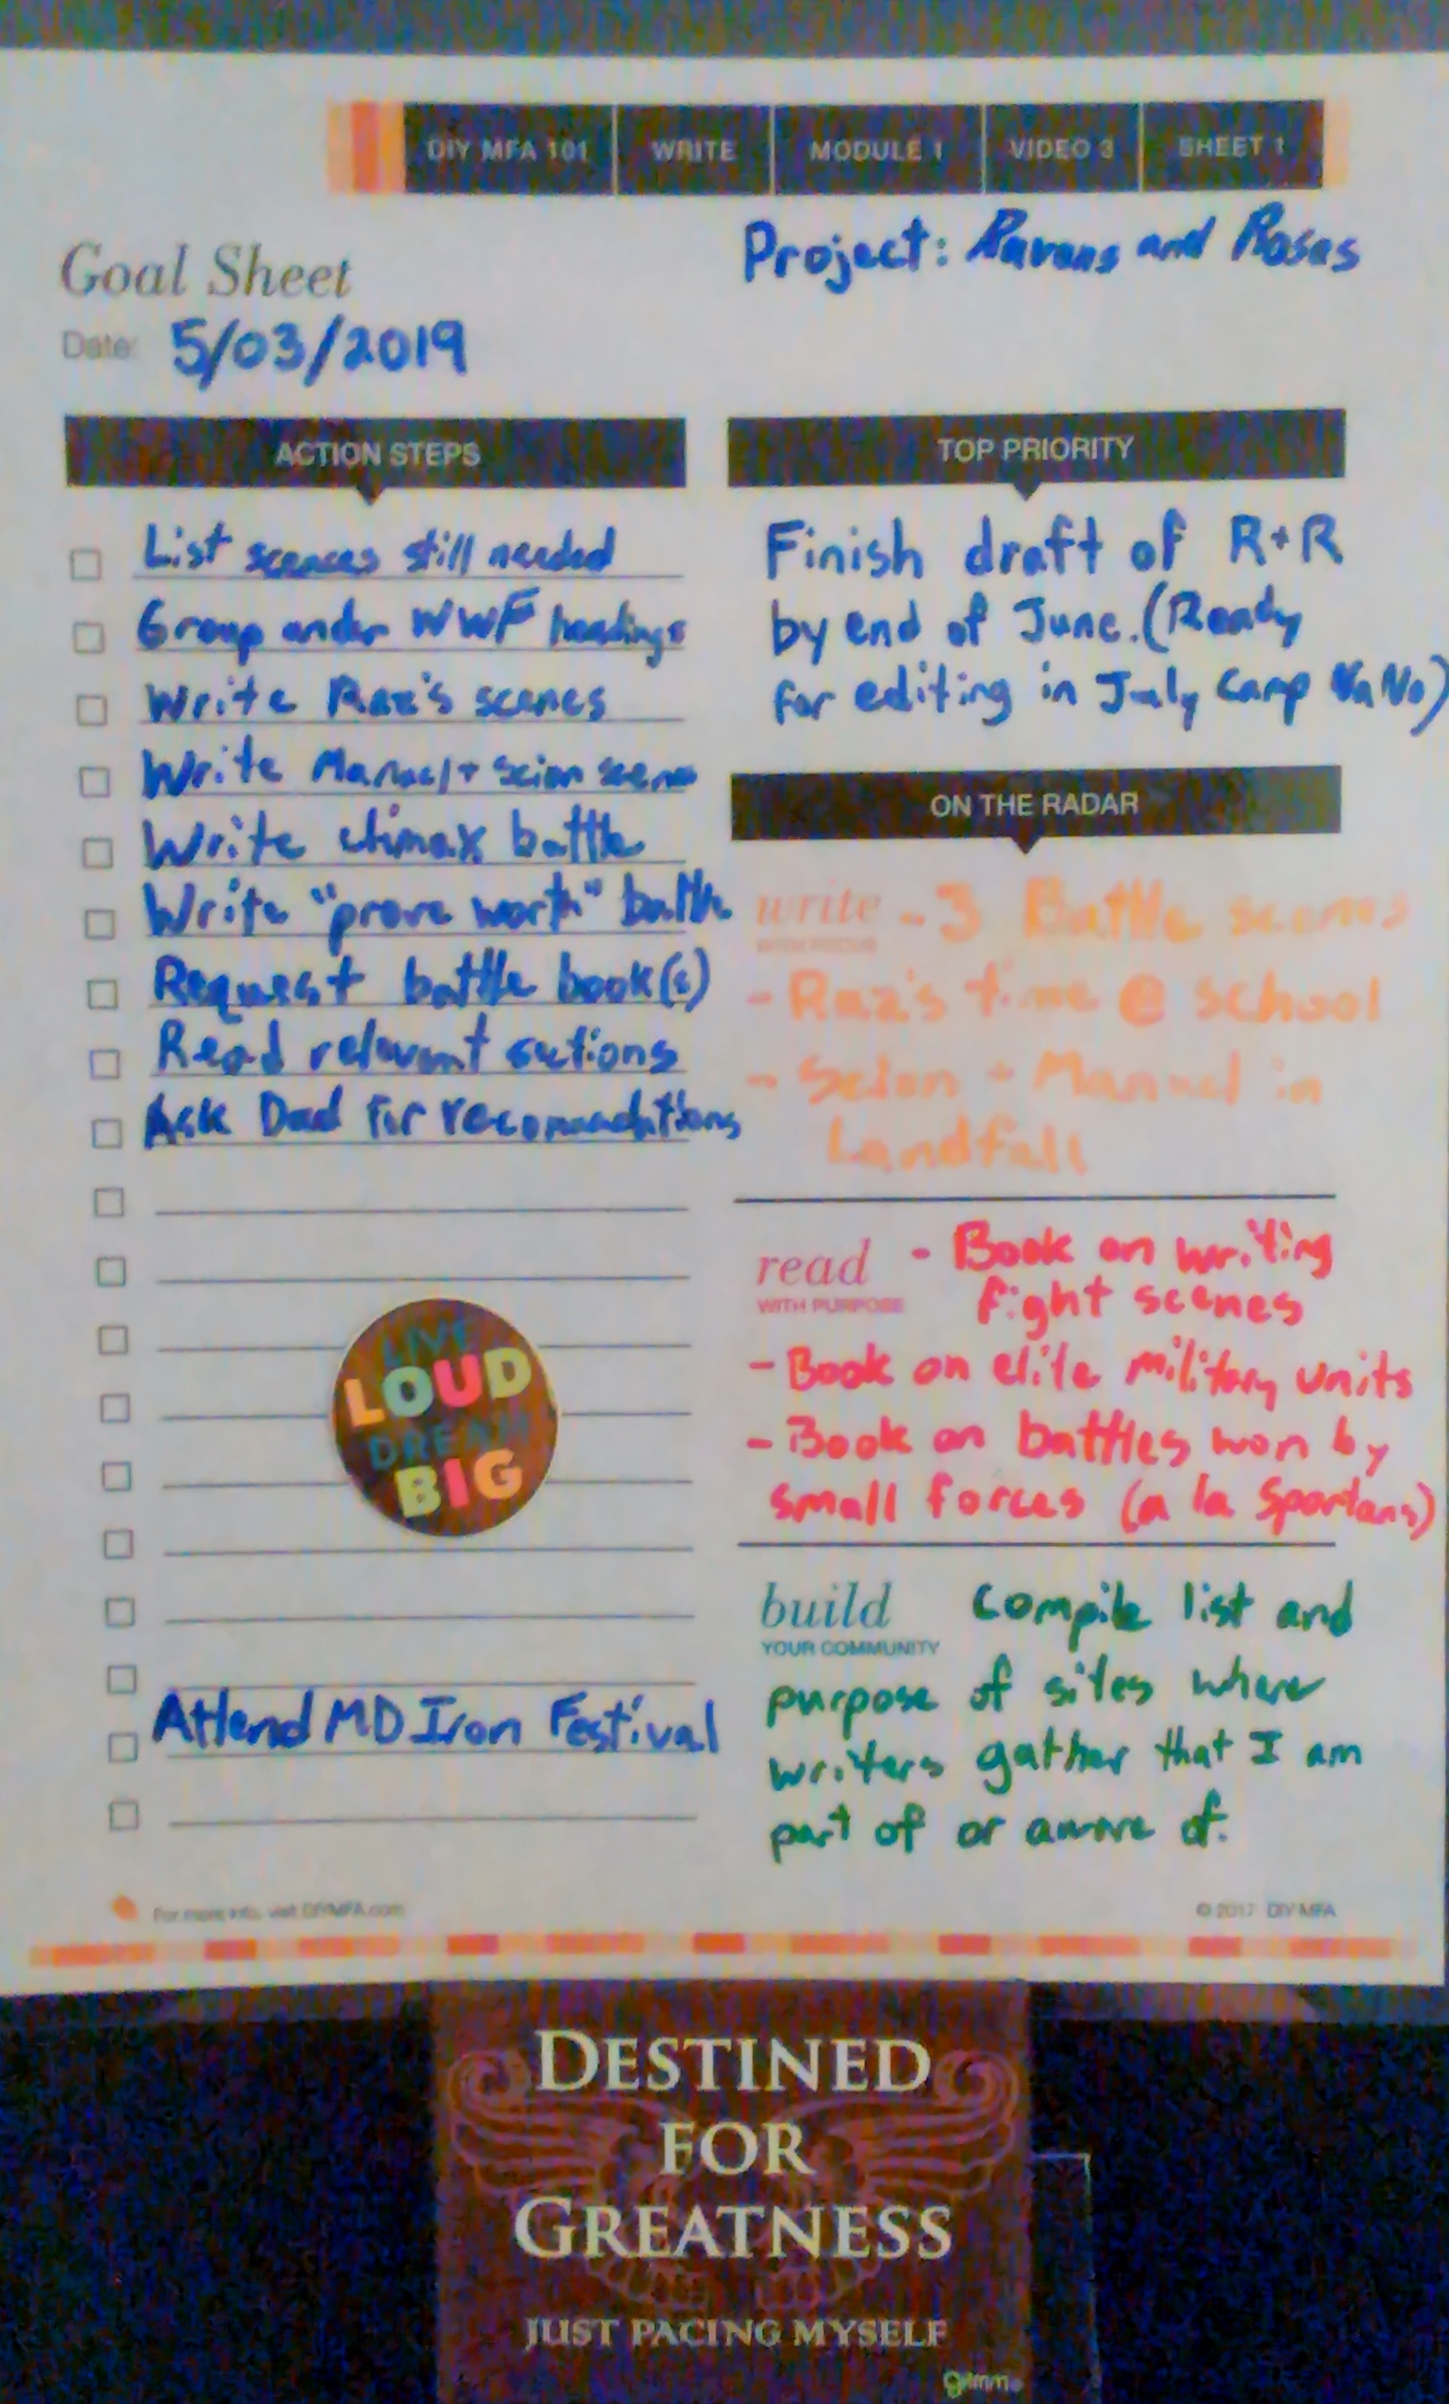 DIY MFA 101 WRITE MODULE 1 VIDEO 3 SHEET 1
Project: Ravens and Roses
Goal Sheet
Date: 5/03/2019
ACTION STEPS
List scences still needed
Group under WWF headings
Write Raz's scenes
Write Manuel + Scion scenes
Write climax battle
Write "prove worth" battle
Request battle book(s)
Read relevant sections
Ask Dad for recommendations
LIVE
LOUD
DREAM
BIG
Attend MD Iron Festival
TOP PRIORITY
Finish draft of R+R
by end of June. (Ready
for editing in July Camp NaNo)
ON THE RADAR
write - 3 Battle scenes
WITH FOCUS
- Raz's time @ school
- Scion + Manuel in
Landfall
read - Book on writing
WITH PURPOSE fight scenes
- Book on elite military units
- Book on battles won by
small forces (a la Spartans)
build Compile list and
YOUR COMMUNITY
purpose of sites where
writers gather that I am
part of or aware of.
For more info, visit DIYMFA.com
© 2017 DIY MFA
DESTINED
FOR
GREATNESS
JUST PACING MYSELF